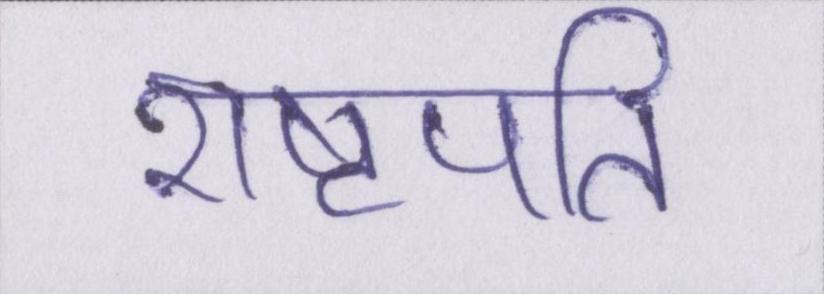 राष्ट्रपति